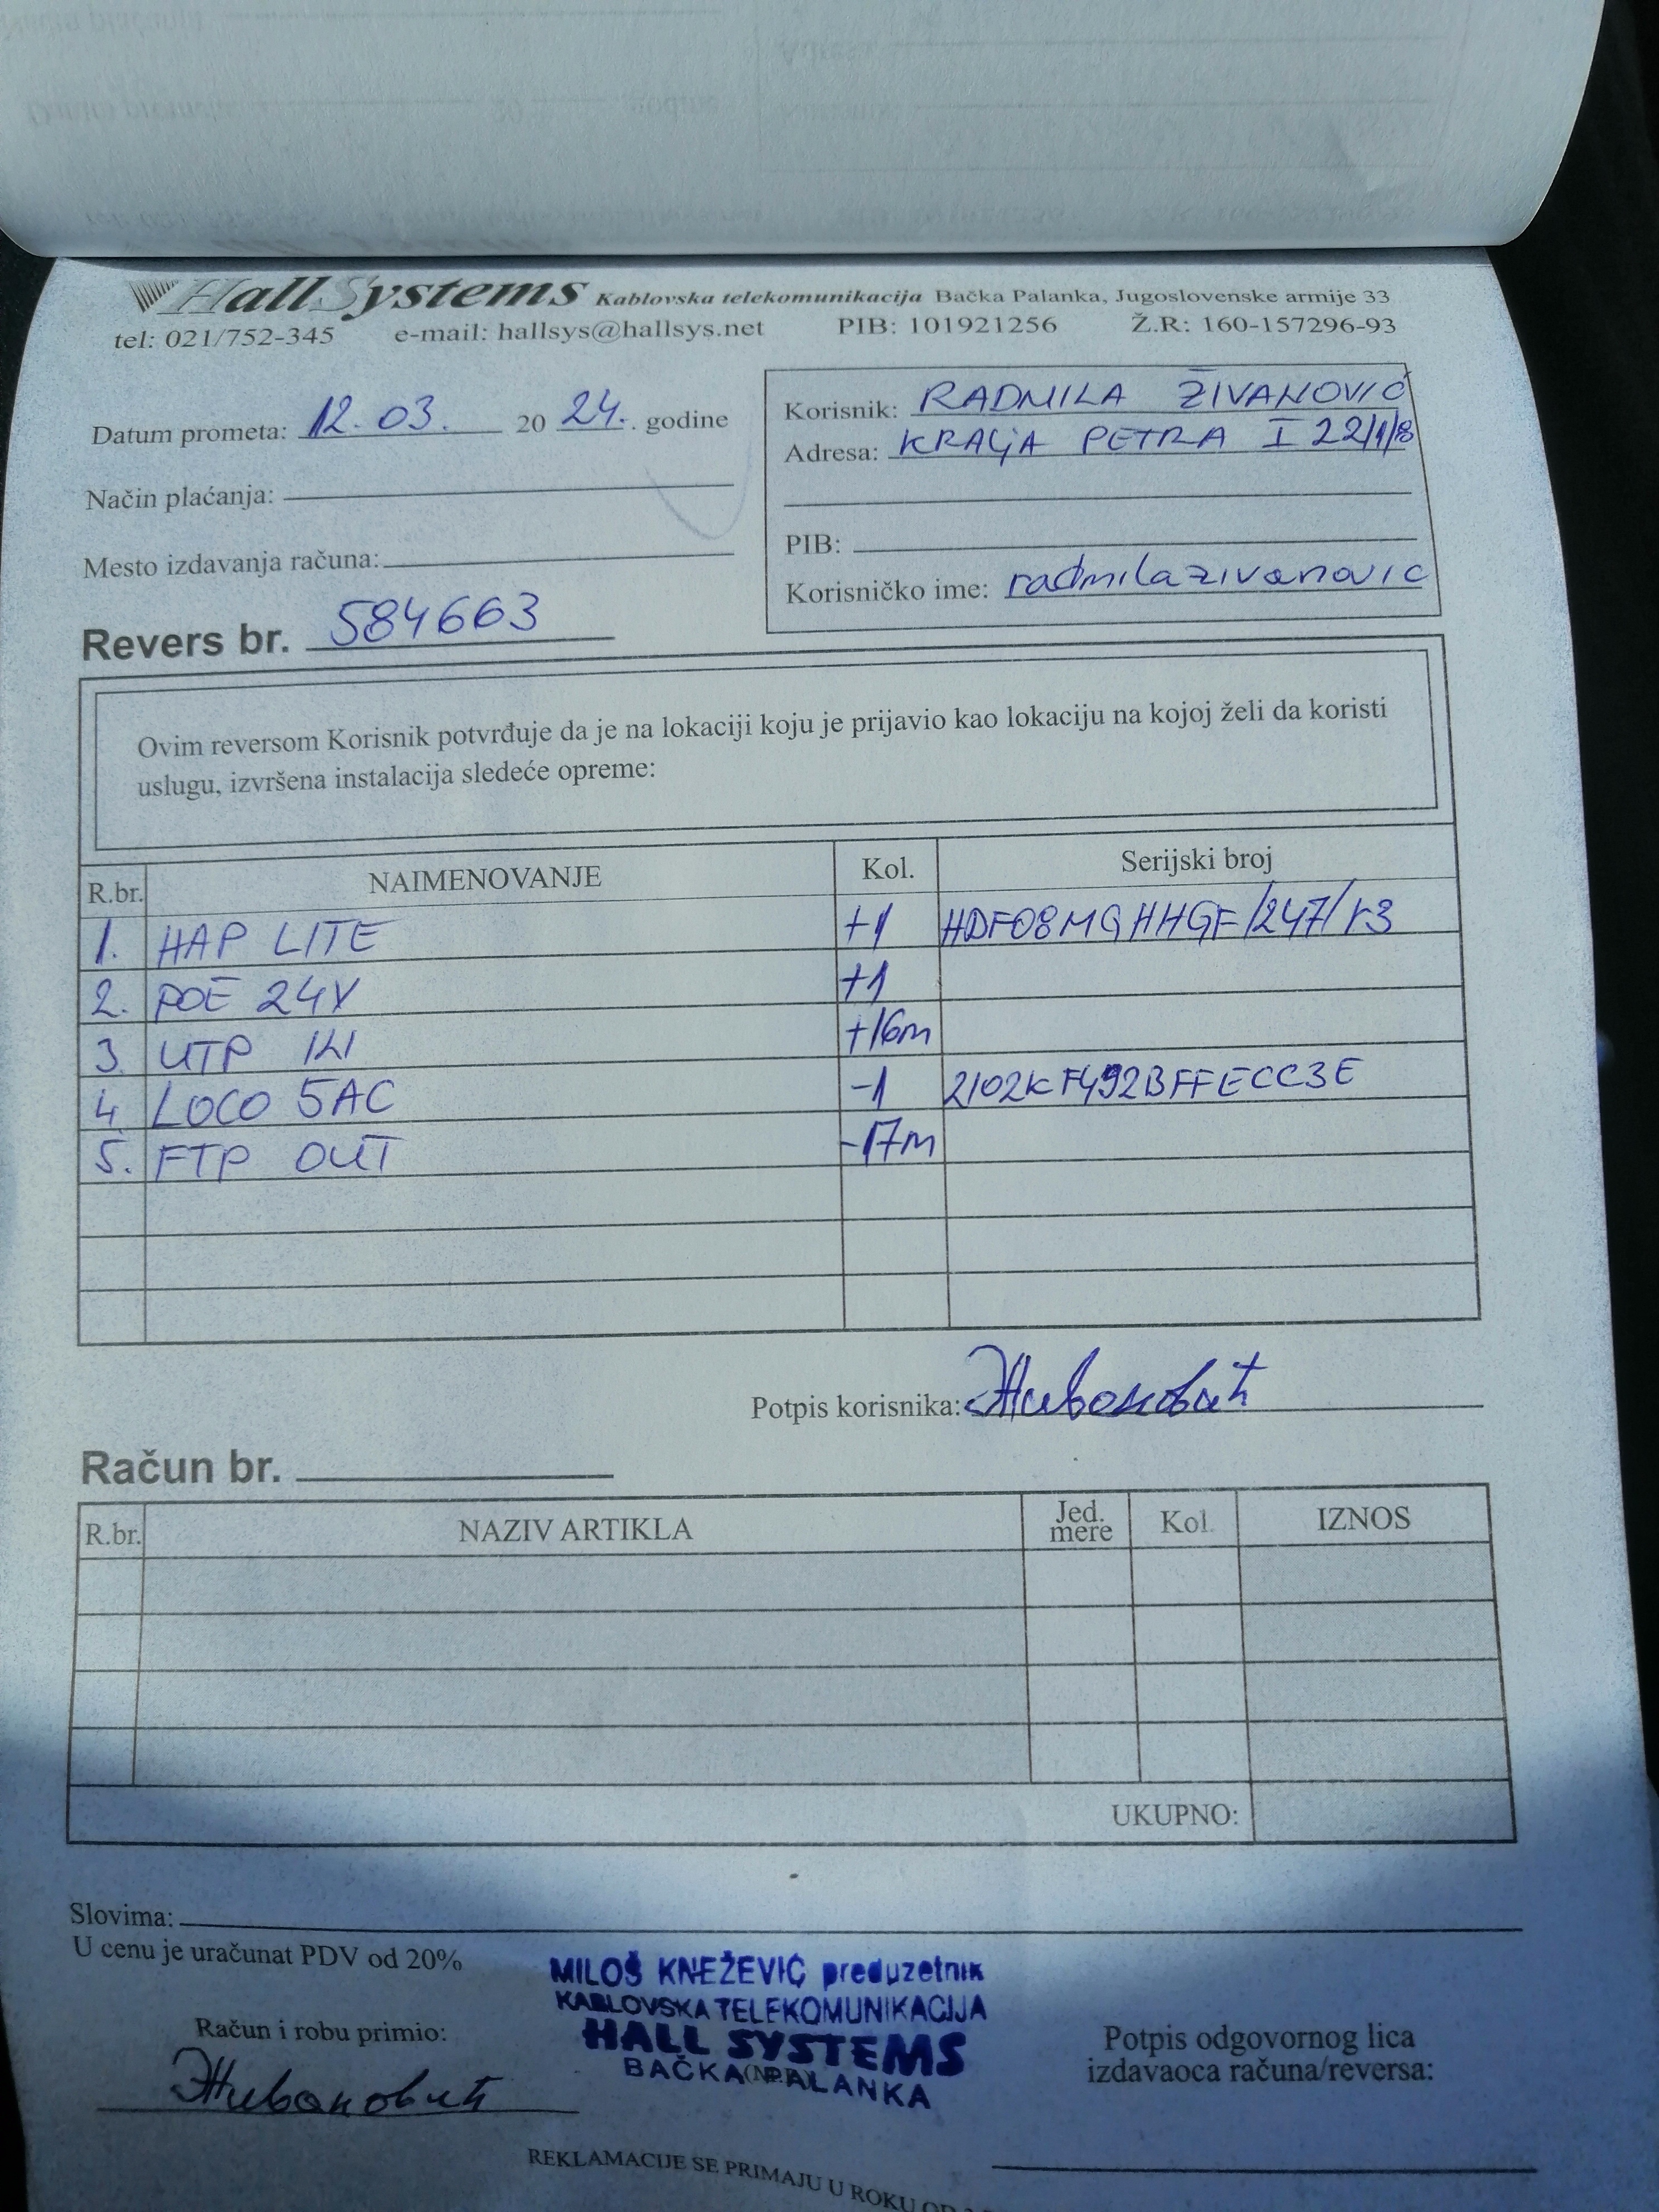 Hall Systems Kablovska telekomunikacija Bačka Palanka, Jugoslovenske armije 33
tel: 021/752-345 e-mail: hallsys@hallsys.net PIB: 101921256 Ž.R: 160-157296-93
Datum prometa: 12.03. 20 24. godine
Način plaćanja:
Mesto izdavanja računa:
Korisnik: RADMILA ŽIVANOVIĆ
Adresa: KRALJA PETRA I 22/1/8
PIB:
Korisničko ime: radmilazivanovic
Revers br. 584663
Ovim reversom Korisnik potvrđuje da je na lokaciji koju je prijavio kao lokaciju na kojoj želi da koristi
uslugu, izvršena instalacija sledeće opreme:
R.br. NAIMENOVANJE Kol. Serijski broj
1. HAP LITE +1 HDF08MQHHGF/247/r3
2. POE 24V +1
3. UTP +16m
4. LOCO 5AC -1 2102KF492BFFECC3E
5. FTP OUT -17m
Potpis korisnika: Живановић
Račun br.
R.br. NAZIV ARTIKLA Jed. mere Kol. IZNOS
UKUPNO:
Slovima:
U cenu je uračunat PDV od 20%
MILOŠ KNEŽEVIĆ preduzetnik
KABLOVSKA TELEKOMUNIKACIJA
HALL SYSTEMS
BAČKA PALANKA
Račun i robu primio:
Живановић
Potpis odgovornog lica
izdavaoca računa/reversa:
REKLAMACIJE SE PRIMAJU U ROKU OD